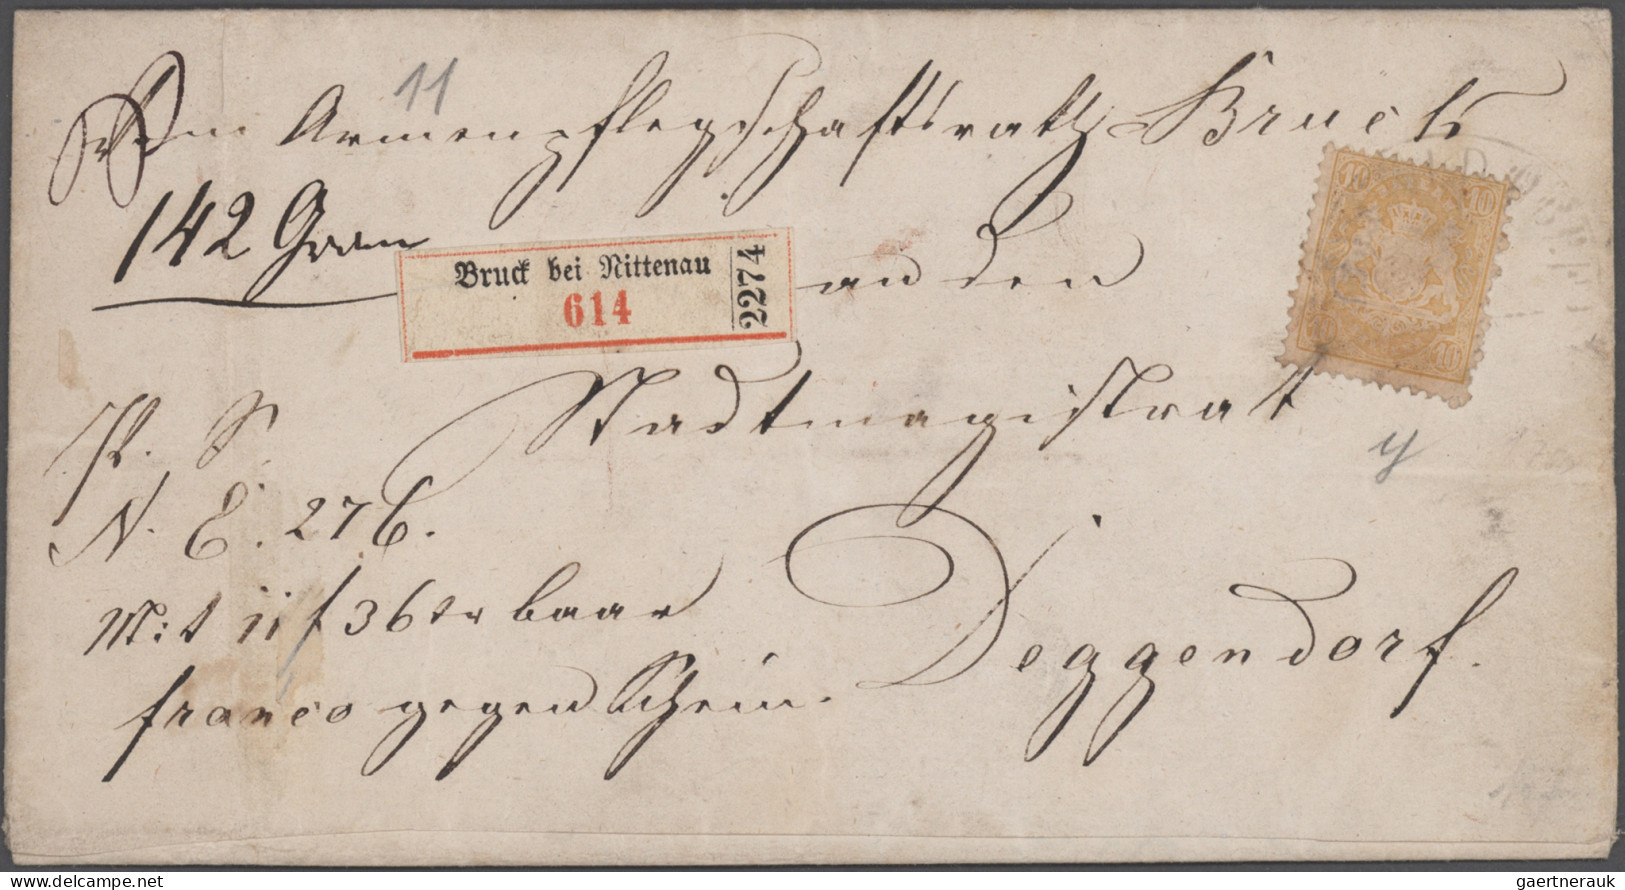 11
Vom Armenpflegschaftsrath Bruck
142 Gram
Bruck bei Nittenau
614
2274
an den
Stadtmagistrat
P. S.
N. E. 276.
Mit 11 f 36 kr baar
franco gegen Schein.
Deggendorf.
10 10
10 10
y
www.delcampe.net
gaertnerauk